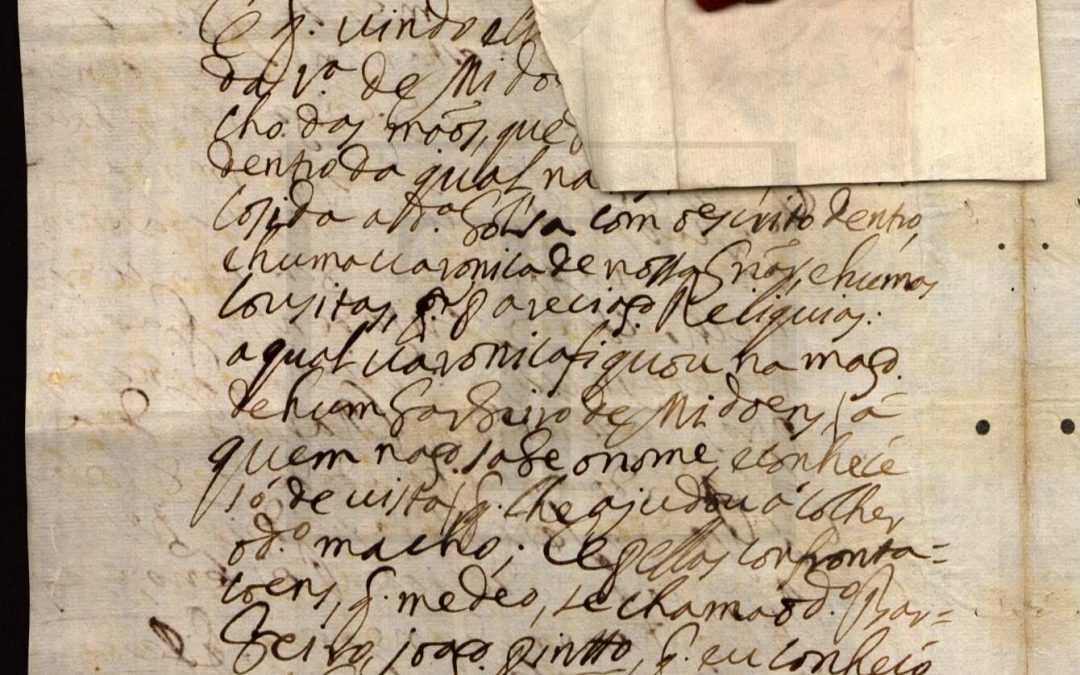 E q. vindo elle
da v.ª de Midoe
cho das mãos, que
dentro da qual na
cosida a d.ª bolsa com o escrito dentro,
e huma uaronica de nossa Snrã, e humas
cousitas, q. pareciaõ Reliquias.
a qual uaronica fiquou na maõ
de hum barbeiro de Midoens, á
quem naõ sabe o nome, e conhece
só de uista, q. lhe ajudou á colher
o d.º macho; e pellas confronta=
coens, q. me deo, se chama o d.º Bar=
beiro, joaõ pintto, q. eu conheco